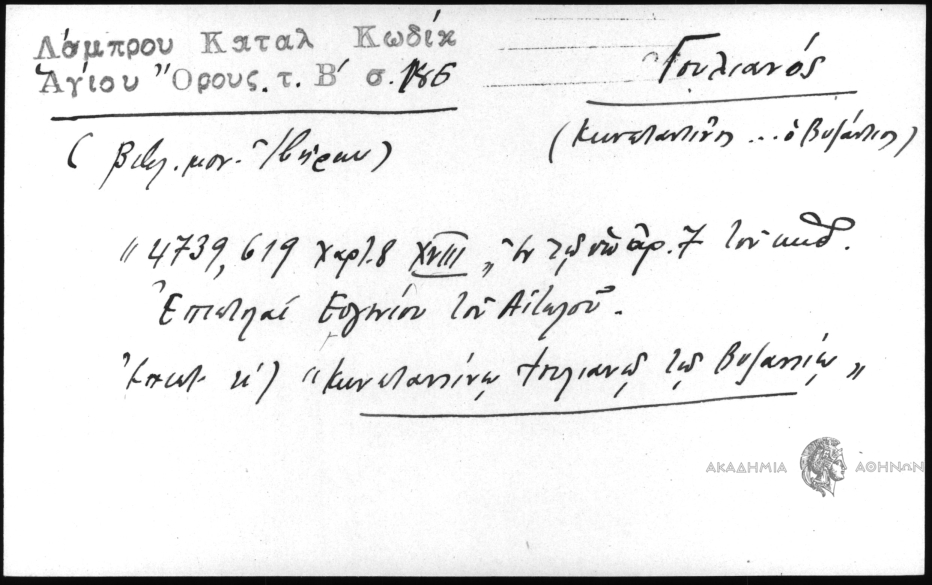 Λάμπρου Καταλ Κωδίκ
Ἁγίου Ὄρους. τ. Β' σ. 186
Γουλιανός
(Βιβλ. μον. Ἰβήρων)
(Κωνσταντῖνος ... ὁ Βυζάντιος)
"4739, 619 χαρτ. 8 XVIII" ἐν τῷ ὑπ' ἀρ. 7 τοῦ κωδ.
Ἐπιστολαί Εὐγενίου τοῦ Αἰτωλοῦ.
Ἐπιστ. κ') "Κωνσταντίνῳ Γουλιανῷ τῷ Βυζαντίῳ"
ΑΚΑΔΗΜΙΑ ΑΘΗΝΩΝ